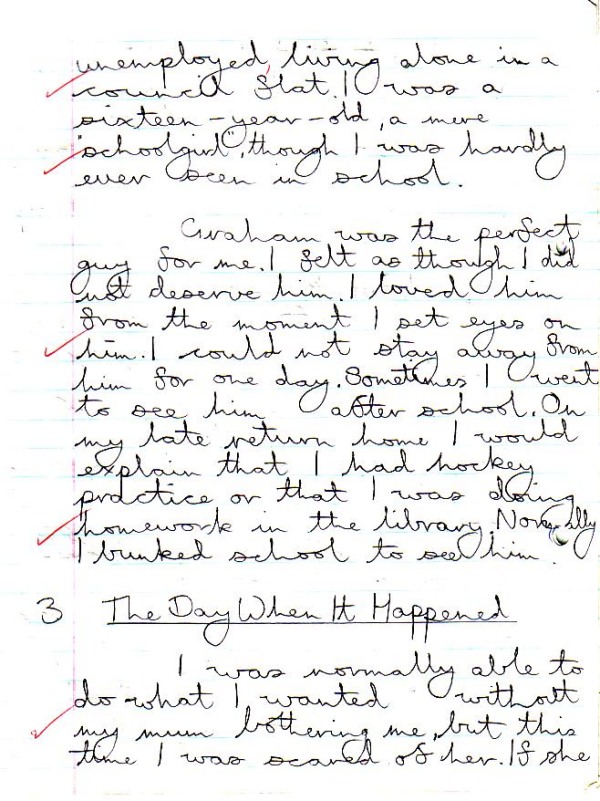 unemployed, living alone in a
council flat. I was a
sixteen-year-old, a mere
"schoolgirl", though I was hardly
ever seen in school.
Graham was the perfect
guy for me. I felt as though I did
not deserve him. I loved him
from the moment I set eyes on
him. I could not stay away from
him for one day. Sometimes I went
to see him after school. On
my late return home I would
explain that I had hockey
practice or that I was doing
homework in the library. Normally
I bunked school to see him.
3 The Day When It Happened
I was normally able to
do what I wanted without
my mum bothering me, but this
time I was scared of her. If she